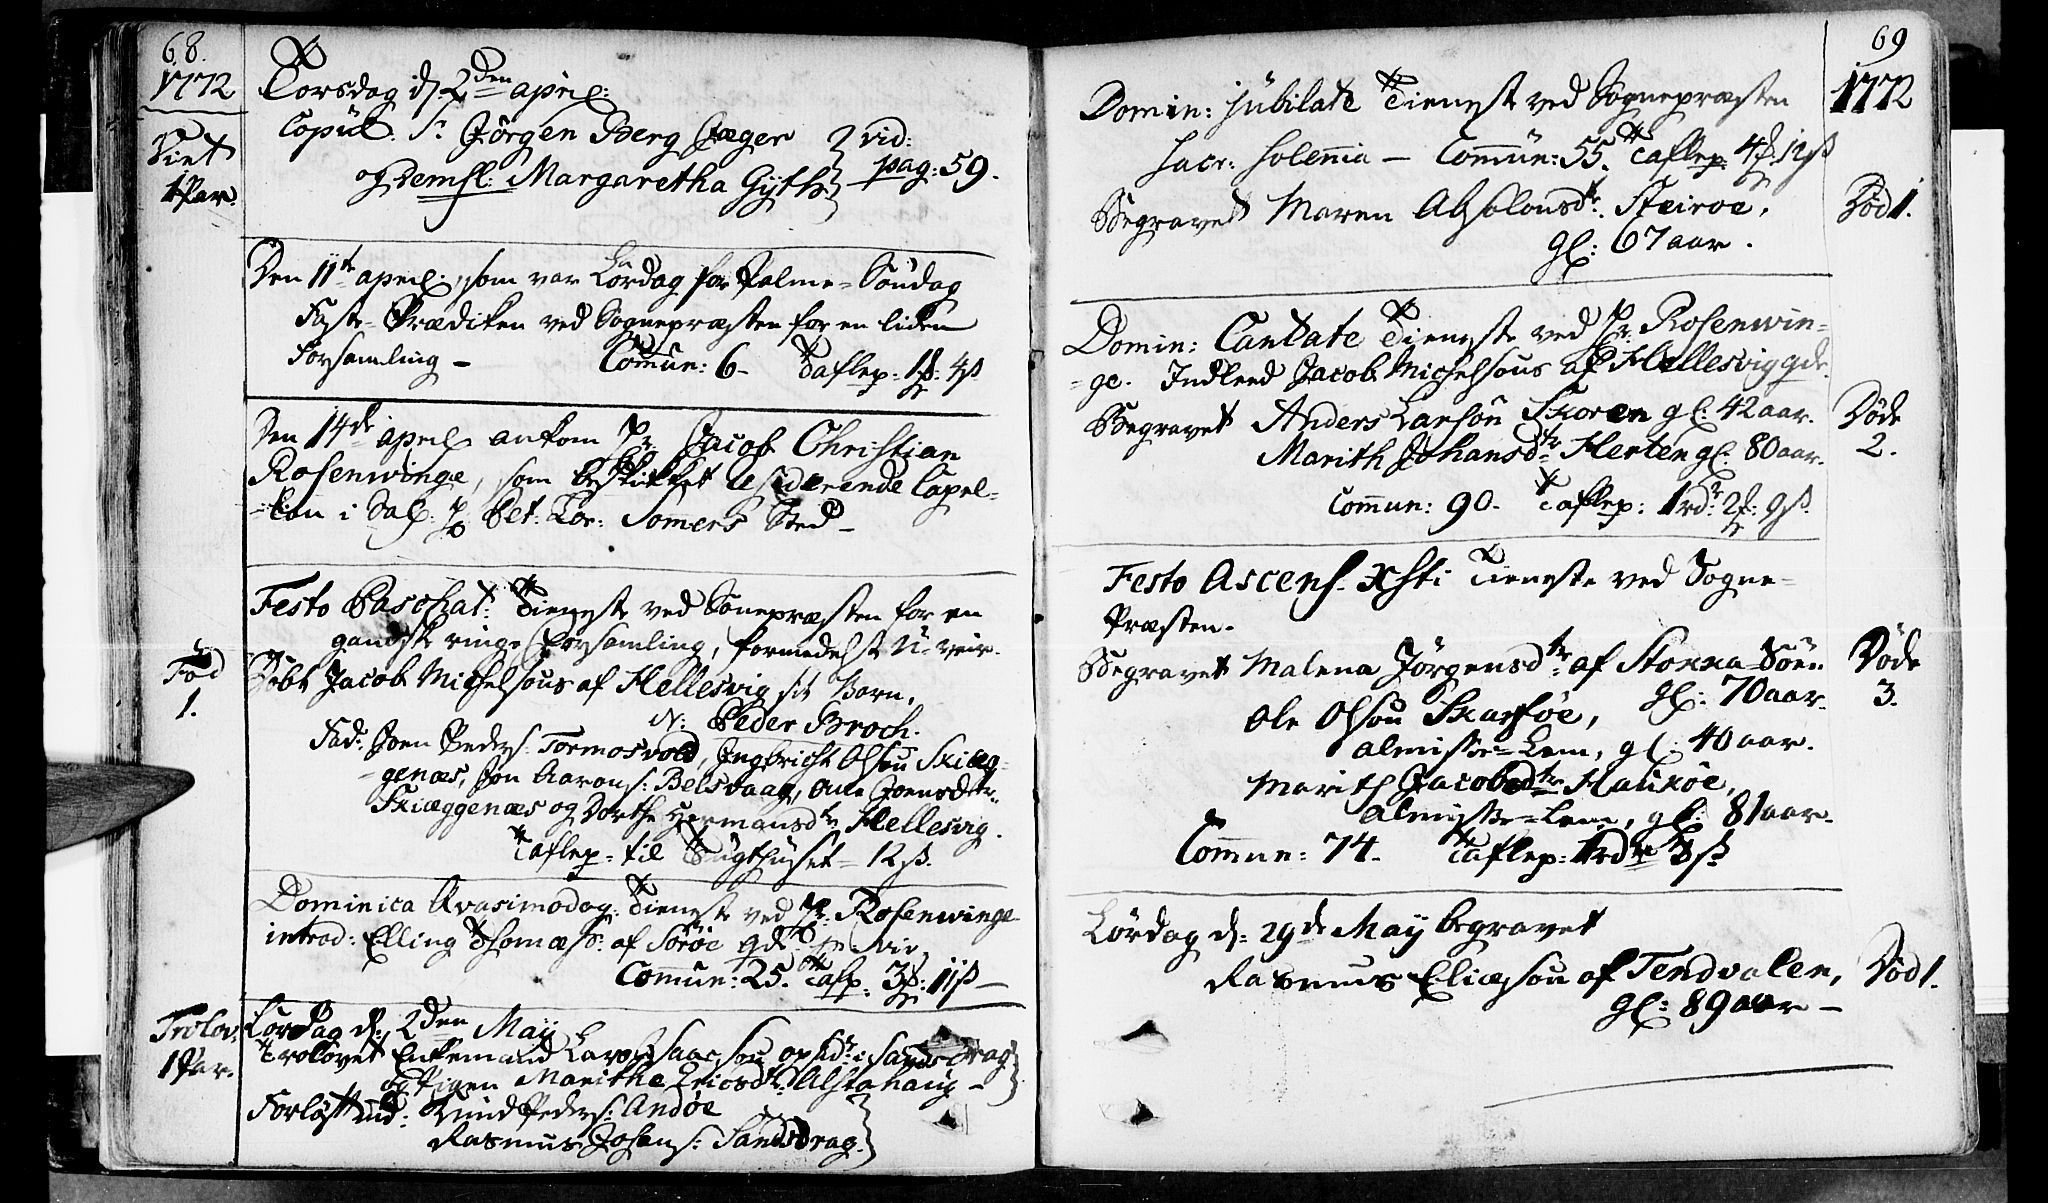 68.
1772
Torsdag d: 2den april:
Copul. Sr Jörgen Berg Jæger } vid:
og Demsl: Margaretha Gyth } pag: 59.
Viet
1 Par.
Den 11te april: som var Lördag for Palme-Söndag
Faste-Prædiken ved Sognepræsten for en liden
Forsamling — Commun: 6 — Taflep: 1 4ß
Den 14de april ankom Hr Jacob Christian
Rosenwinge, som beskikket residerende Capel-
-lan i Sal: Hr Pet: Sommers Sted —
Festo Paschat: Tieneste ved Sonepræsten for en
gandske ringe Forsamling, formedelst U-veir.
Föd
1.
Döbt Jacob Michelsøns af Hellesvig sit Barn.
N: Peder Broch.
Fad: Joen Peders: Tormosvold, Ingbricht Olsøn Skiæg-
genæs, Jon Aarons: Belsvaag, Ane Joensdtr:
Skiæggenæs og Dorthe Hermansdtr Hellesvig.
Taflep: til Tugthuset — 12ß.
Dominica Qvasimodog: Tieneste ved Hr Rosenwinge
introd: Elling Thomæs: af Söröe
Commun: 25. Tafp: 3 11ß —
Trolov:
1 Par.
Lördag d: 2den May
Trolovet Enkemand Lars Isaacsøn ops: i Sandsdrag
og Pigen Marithe Ericsdtr: Alstahaug —
Forløftmd: Peders: Andöe
Rasmus Johans: Sandsdrag.
69
1772
Domin: Jubilate Tieneste ved Sognepræsten
Sacr: Solennia — Commun: 55. Taflep: 4 12ß
Begravet Maren Absolonsdtr: Steiroe,
gl: 67 aar.
Död 1.
Domin: Cantate Tieneste ved Hr Rosenwin-
-ge. Indleed Jacob Michelsøns af Hellesvig
Begravet Anders Larsøn Skoren gl: 42 aar.
Marith Johansdtr Herten gl: 80 aar.
Commun: 90. Taflep: 1 rdr: 2 9ß.
Döde
2.
Festo Ascens. Xsti Tieneste ved Sogne-
Præsten.
Begravet Malena Jörgensdtr: af Stokka-Söen
gl: 70 aar.
Ole Olsøn Skarföe,
almisse-Lem, gl: 40 aar.
Marith Jacobsdtr Hauköe,
almisse-Lem, gl: 81 aar.
Commun: 74. Taflep: 1 rdr 8ß
Döde
3.
Lördag d: 29de May begravet
Rasmus Eliæsøn af Tendvalen,
gl: 89 aar —
Död 1.